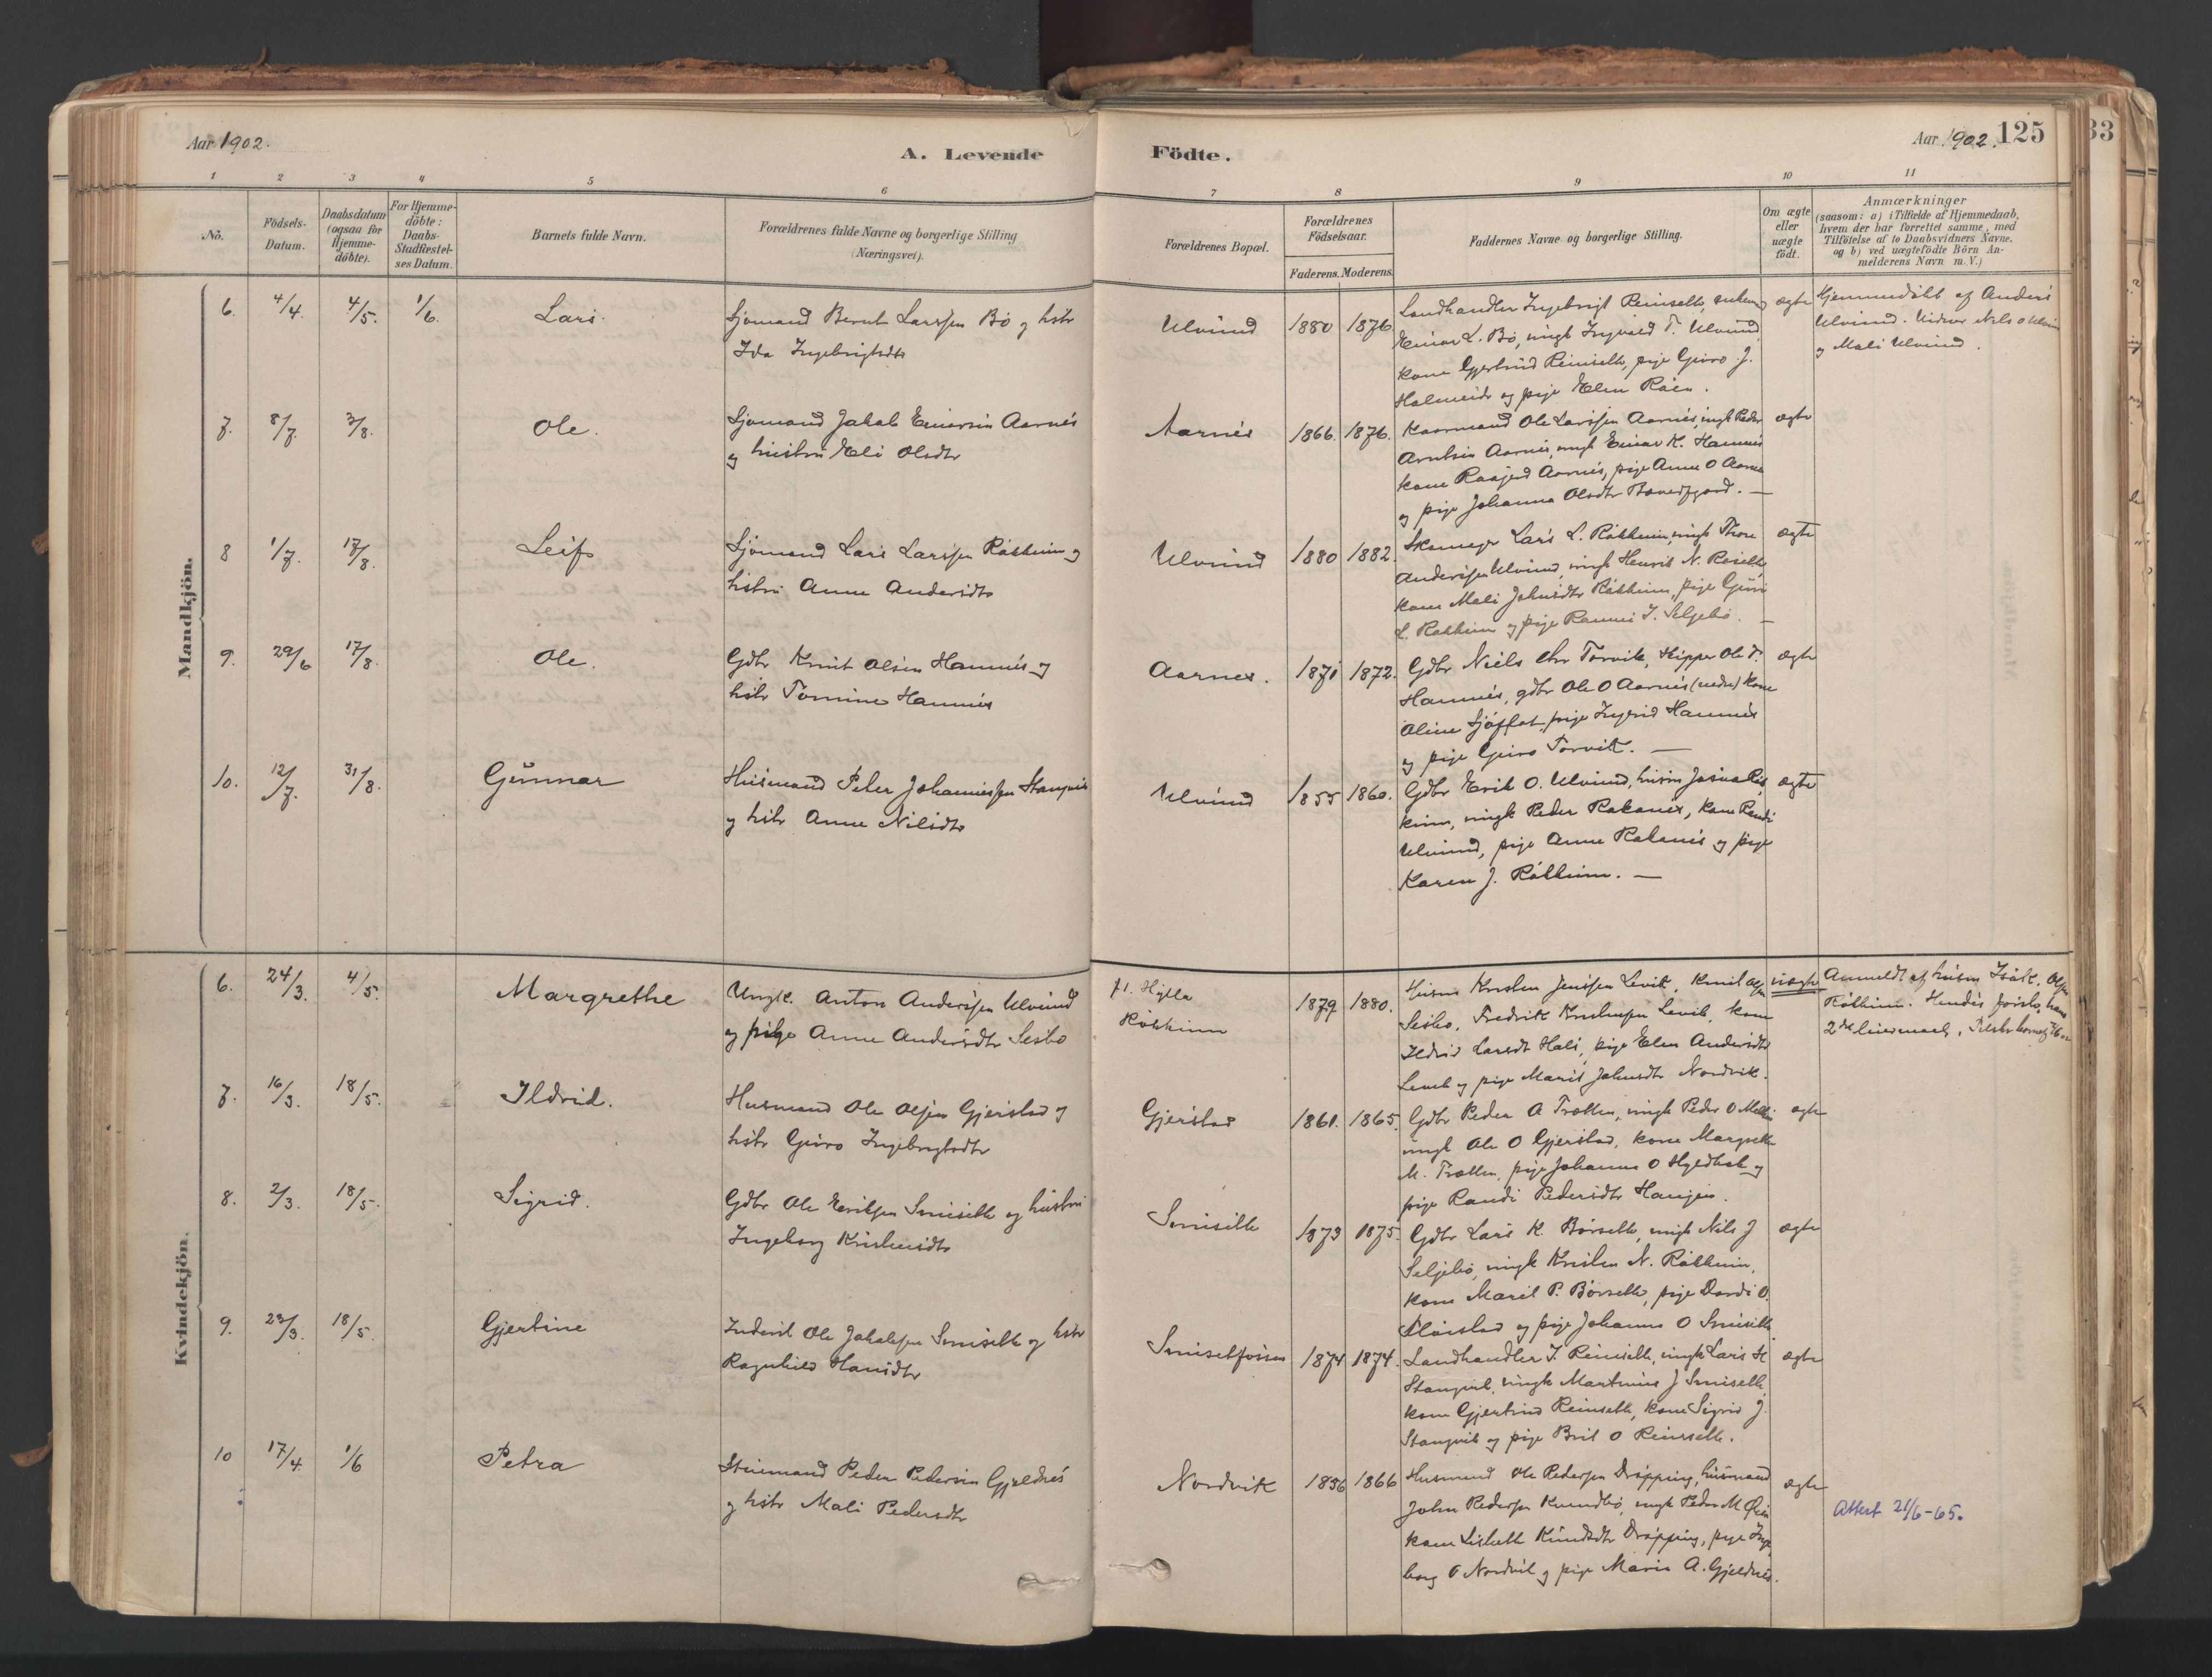 Aar 1902.
A. Levende
Födte.
Aar 1902.
125
33
1 2 3 4 5 6 7 8 9 10 11
No.
Födsels-
Datum.
Daabsdatum
(ogsaa for
Hjemme-
döbte).
For Hjemme-
döbte:
Daabs-
Stadfæstel-
ses Datum.
Barnets fulde Navn.
Forældrenes fulde Navne og borgerlige Stilling
(Næringsvei).
Forældrenes Bopæl.
Forældrenes
Födselsaar.
Faderens. Moderens.
Faddernes Navne og borgerlige Stilling.
Om ægte
eller
uægte
födt.
Anmærkninger
(saasom: a) i Tilfælde af Hjemmedaab,
hvem der har forrettet samme, med
Tilföielse af to Daabsvidners Navne,
og b) ved uægtefödte Börn An-
melderens Navn m. V.)
Mandkjön.
6. 4/4. 4/5. 1/6. Lars.
Sjømand Bernt Larssen Bö og hstr
Ida Ingebrigtsdtr
Ulvund 1880 1876
Landhandler Ingebrigt Reinseth,
Einar L. Bö, ungk Ingvald T. Ulvund,
kone Gjertrud Reinseth, pige Guro J.
Halmeide og pige Elen Röen.
ægte
Hjemmedöbt af Anders
Ulvund. Vidner Nils O Ulvun
og Mali Ulvund.
7. 8/7. 3/8. Ole.
Sjømand Jakob Einersen Aarnes
og hustru Eli Olsdtr
Aarnes 1866. 1876.
Kaarmand Ole Larssen Aarnes, ungk Peder
Arntsen Aarnes, ungk Einar K. Hamnes
kone Aarnes, pige Anne O Aarnes
og pige Johanna Olsdtr
ægte
8 1/7. 17/8. Leif
Sjømand Lars Larssen Rökkum og
hstru Anne Andersdtr
Ulvund 1880 1882.
Skomager Lars L. Rökkum, ungk Thore
Anderssen Ulvund, ungk Henrik N.
kone Mali Johnsdtr Rökkum, pige Guri
L. Rökkum og pige J. Seljebö.
ægte
9. 29/6 17/8. Ole.
Gdbr Knut Olsen Hamnes og
hstr Tomine Hamnes
Aarnes. 1871 1872.
Gdbr Niels Chr Torvik, Skipper Ole T.
Hamnes, gdbr Ole O Aarnes (nedre) kone
Oline pige Ingrid Hamnes
og pige Guro Torvik.
ægte
10. 12/7. 31/8. Gunnar
Husmand Peter Johannessen Stangvik
og hstr Anne Nilsdtr
Ulvund 1855 1860.
Gdbr Erik O. Ulvund, husm
ungk Peder Rakanes, kone Randi
Ulvund, pige Anne Rakanes og pige
Karen J. Rökkum.
ægte
Kvindekjön.
6. 24/3. 4/5. Margrethe
Ungk. Anton Anderssen Ulvund
og pige Anne Andersdtr Sesbö
pt. Hylla
Rökkum
1879 1880.
Husm Kristen Jenssen Levik, Knut Olsen
Sesbö, Fredrik Kristensen Levik, kone
Ildrid Larsdt Hals, pige Elen Andersdtr
og pige Marit Johnsdtr Nordvik.
uægte
Anmeldt af husm Isak Olsen
Rökkum. Hendes förste, hans
2det leiermaal.
7. 16/3. 18/5. Ildrid.
Husmand Ole Olsen Gjerstad og
hstr Guro Ingebrigtsdtr
Gjerstad 1861. 1865.
Gdbr Peder A Trötten, ungk Peder O
ungk Ole O Gjerstad, kone Margrethe
M. Trötten, pige Johanna O og
pige Randi Pedersdtr Haugen.
ægte
8. 2/3. 18/5. Sigrid.
Gdbr Ole Eriksen Smiseth og hustru
Ingeborg Kristensdtr
Smiseth 1873 1875.
Gdbr Lars K. Börseth, ungk Nils J
Seljebö, ungk Kristen N. Rökkum,
kone Marit P. Börseth, pige Dordi O.
og pige Johanna O Smiseth
ægte
9. 23/3. 18/5. Gjertine
Inderst Ole Jakobsen Smiseth og hstr
Ragnhild Hansdtr
Smisetfossen 1874 1874.
Landhandler I. Reinseth, ungk Lars H
Stangvik, ungk Martinus J Smiseth,
kone Gjertrud Reinseth, kone Sigrid J.
Stangvik og pige Brit O Reinseth.
ægte
10 17/4. 1/6 Petra
Stuemand Peder Pedersen Gjeldnes
og hstr Mali Pedersdtr
Nordvik 1856 1866
Husmand Ole Pedersen Dröpping, husmand
John Pedersen ungk Peder M
kone Lisbeth Knudsdtr Dröpping, pige Inge
borg O Nordvik og pige Marie A. Gjeldnes.
ægte
Attest 21/6-65.